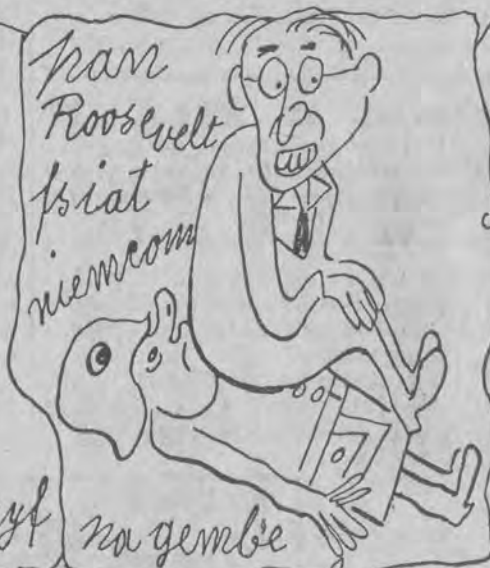 pan
Roosevelt
fsiat
niemcom
na gembe